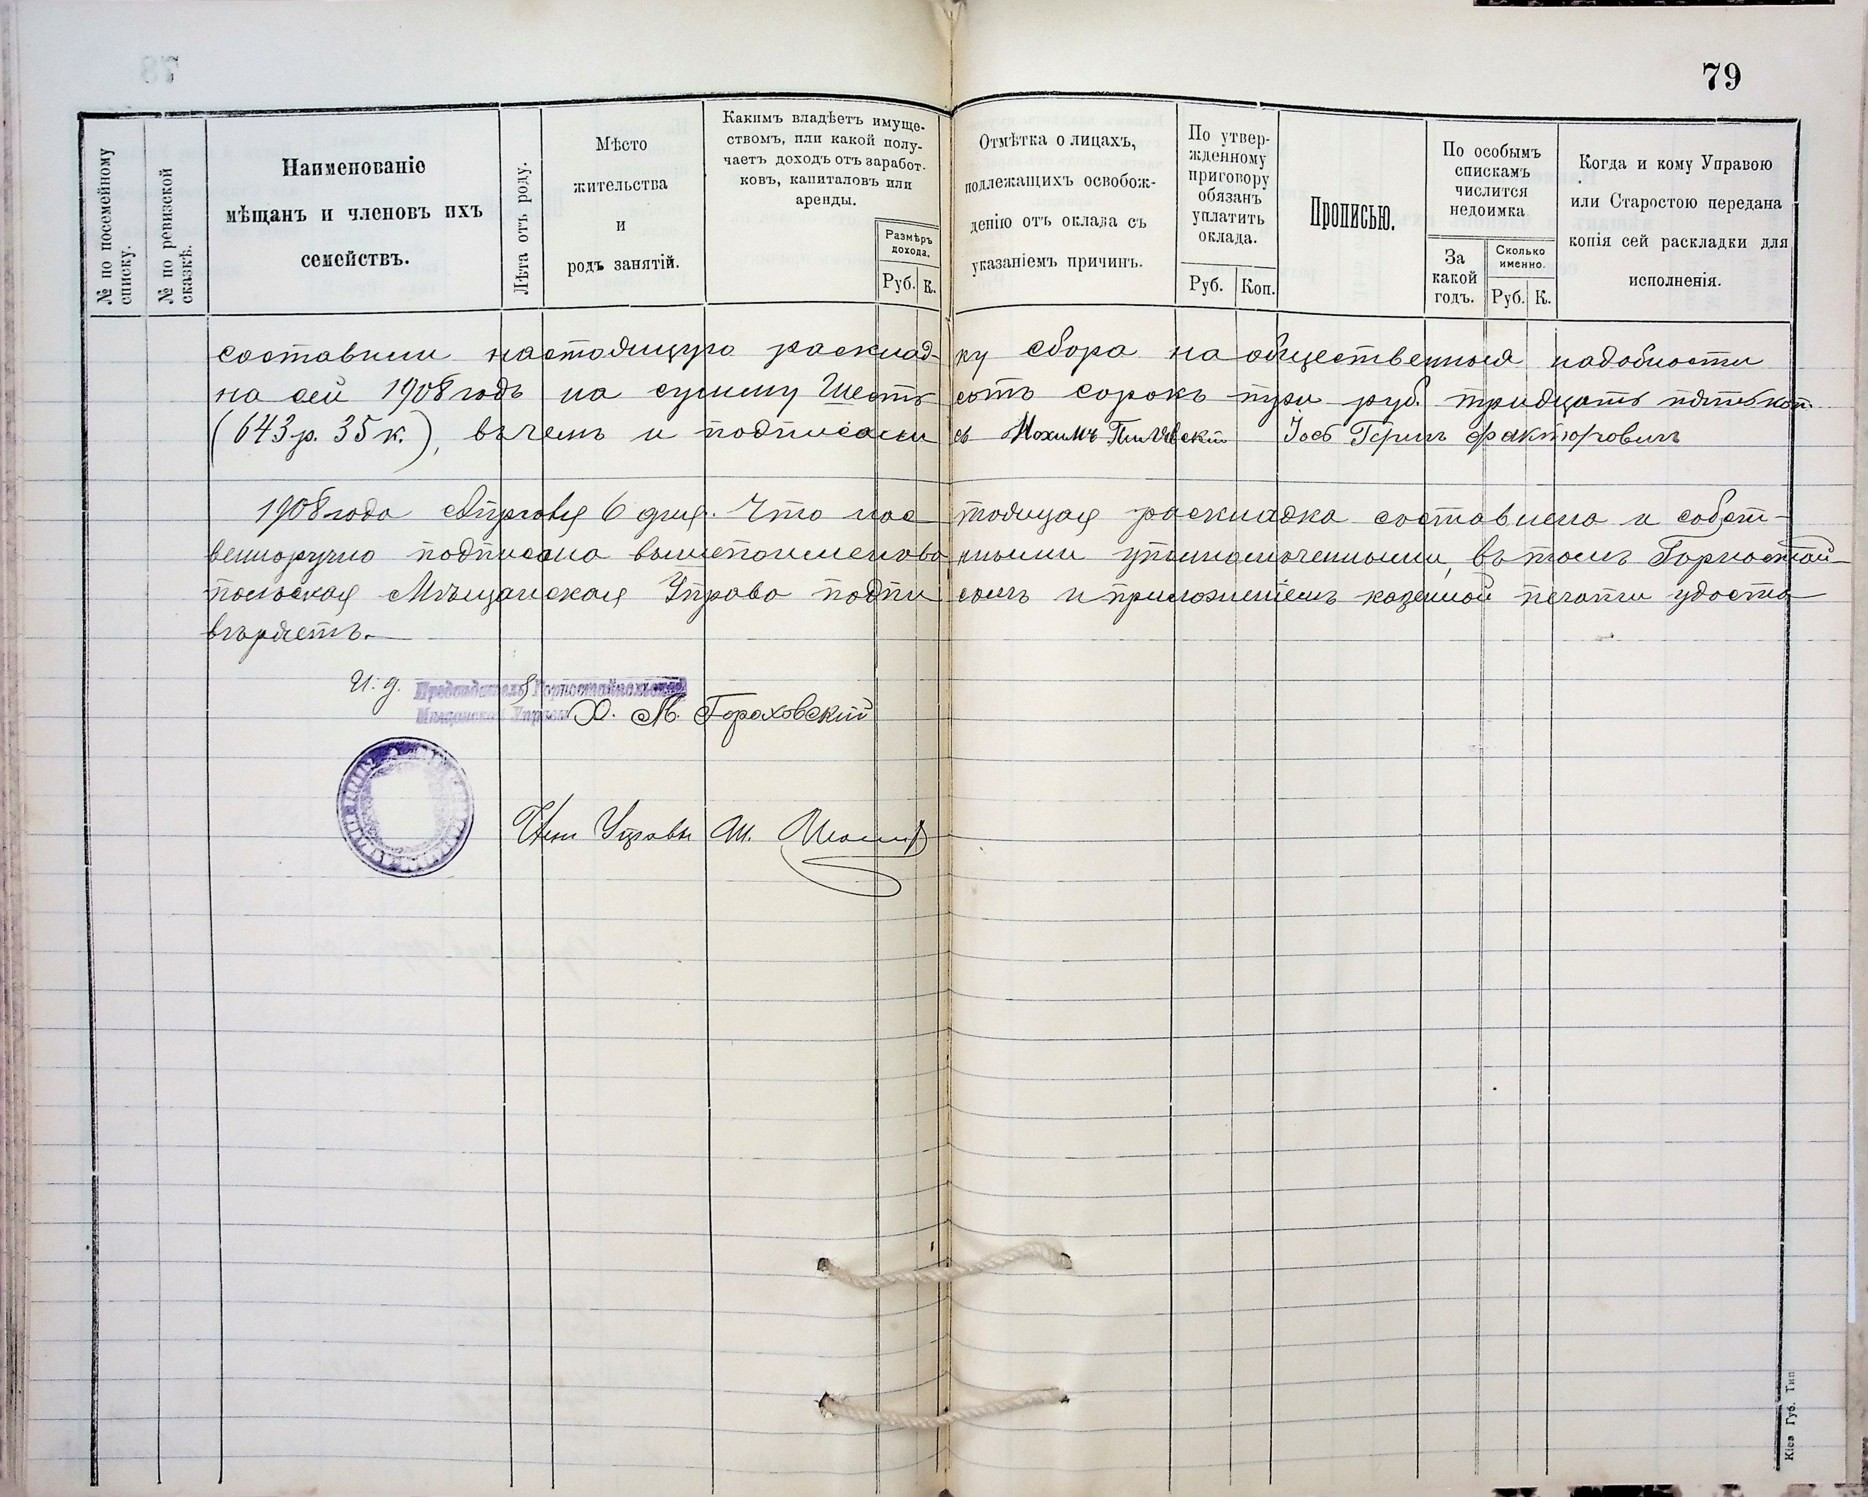 79
№ по посемейному
списку.
№ по ревизской
сказкѣ.
Наименованіе
мѣщанъ и членовъ ихъ
семействъ.
Лѣта отъ роду.
Мѣсто
жительства
и
родъ занятій.
Какимъ владѣетъ имуще-
ствомъ, или какой полу-
чаетъ доходъ отъ заработ-
ковъ, капиталовъ или
аренды.
Размѣръ
дохода.
Руб. К.
Отмѣтка о лицахъ,
подлежащихъ освобож-
денію отъ оклада съ
указаніемъ причинъ.
По утвер-
жденному
приговору
обязанъ
уплатить
оклада.
Руб. Коп.
Прописью.
По особымъ
спискамъ
числится
недоимка
За
какой
годъ.
Сколько
именно.
Руб. К.
Когда и кому Управою
или Старостою передана
копія сей раскладки для
исполненія.
составили настоящую расклад-ку сбора на общественныя надобности
на сей 1908 годъ на сумму Шесть сотъ сорокъ три руб. тридцать пять коп.
(643 р. 35 к.), въ чемъ и подписались Нохимъ Іосъ Герш Факторовичъ
1908 года Апрѣля 6 дня. Что настоящая раскладка составлена и собст-
венноручно подписана вышепоименованными уполномоченными, въ томъ Горностай-
польская Мѣщанская Управа подписомъ и приложеніемъ казенной печати удосто-
вѣряетъ.
И. д. Предсѣдатель Горностайпольской
Мѣщанской Управы Х. М. Гороховскій
Член Управы Ш.
Кіев Губ. Тип